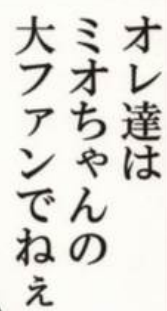 オレ達は
ミオちゃんの
大ファンでねぇ